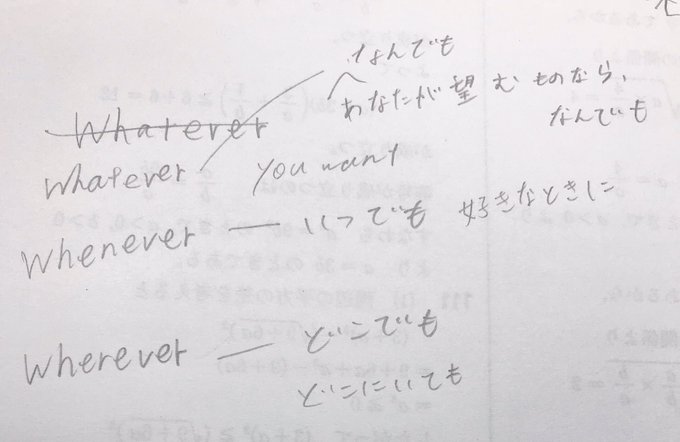 なんでも
あなたが望むものなら、
なんでも
Whatever
whatever you want
Whenever — いつでも 好きなときに
Wherever — どこでも
どこにいても